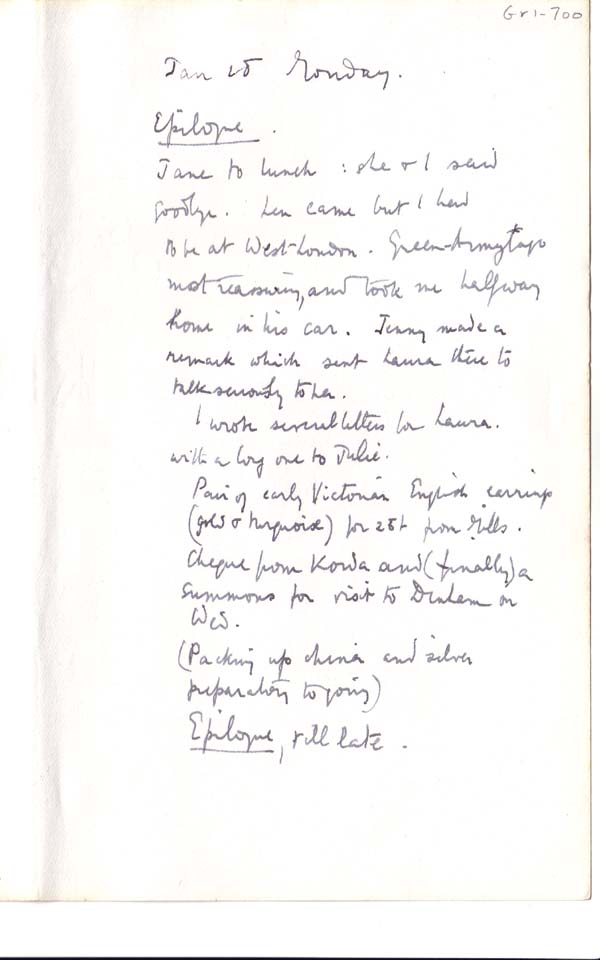 Gr1-700
Jan 25 Monday.
Epilogue.
Jane to lunch: she & I said
goodbye. Len came but I had
to be at West-London. Green-Armytage
most reassuring, and took me halfway
home in his car. Jenny made a
remark which sent Laura there to
talk seriously to her.
I wrote several letters for Laura.
with a long one to Julie.
Pair of early Victorian English earrings
(gold & turquoise) for 25/- from Mills.
Cheque from Korda and (finally) a
summons for visit to Denham on
Wed.
(Packing up china and silver
preparatory to going)
Epilogue, till late.